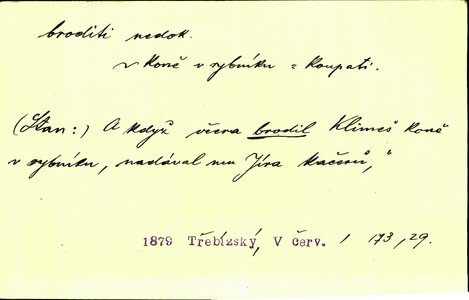 broditi nedok.
~ koně v rybníku = koupati.
(Stan:) A když včera brodil Klimeš koně
v rybníku, nadával mu Jíra kačerů,"
1879 Třebízský, V červ. / 173, 29.